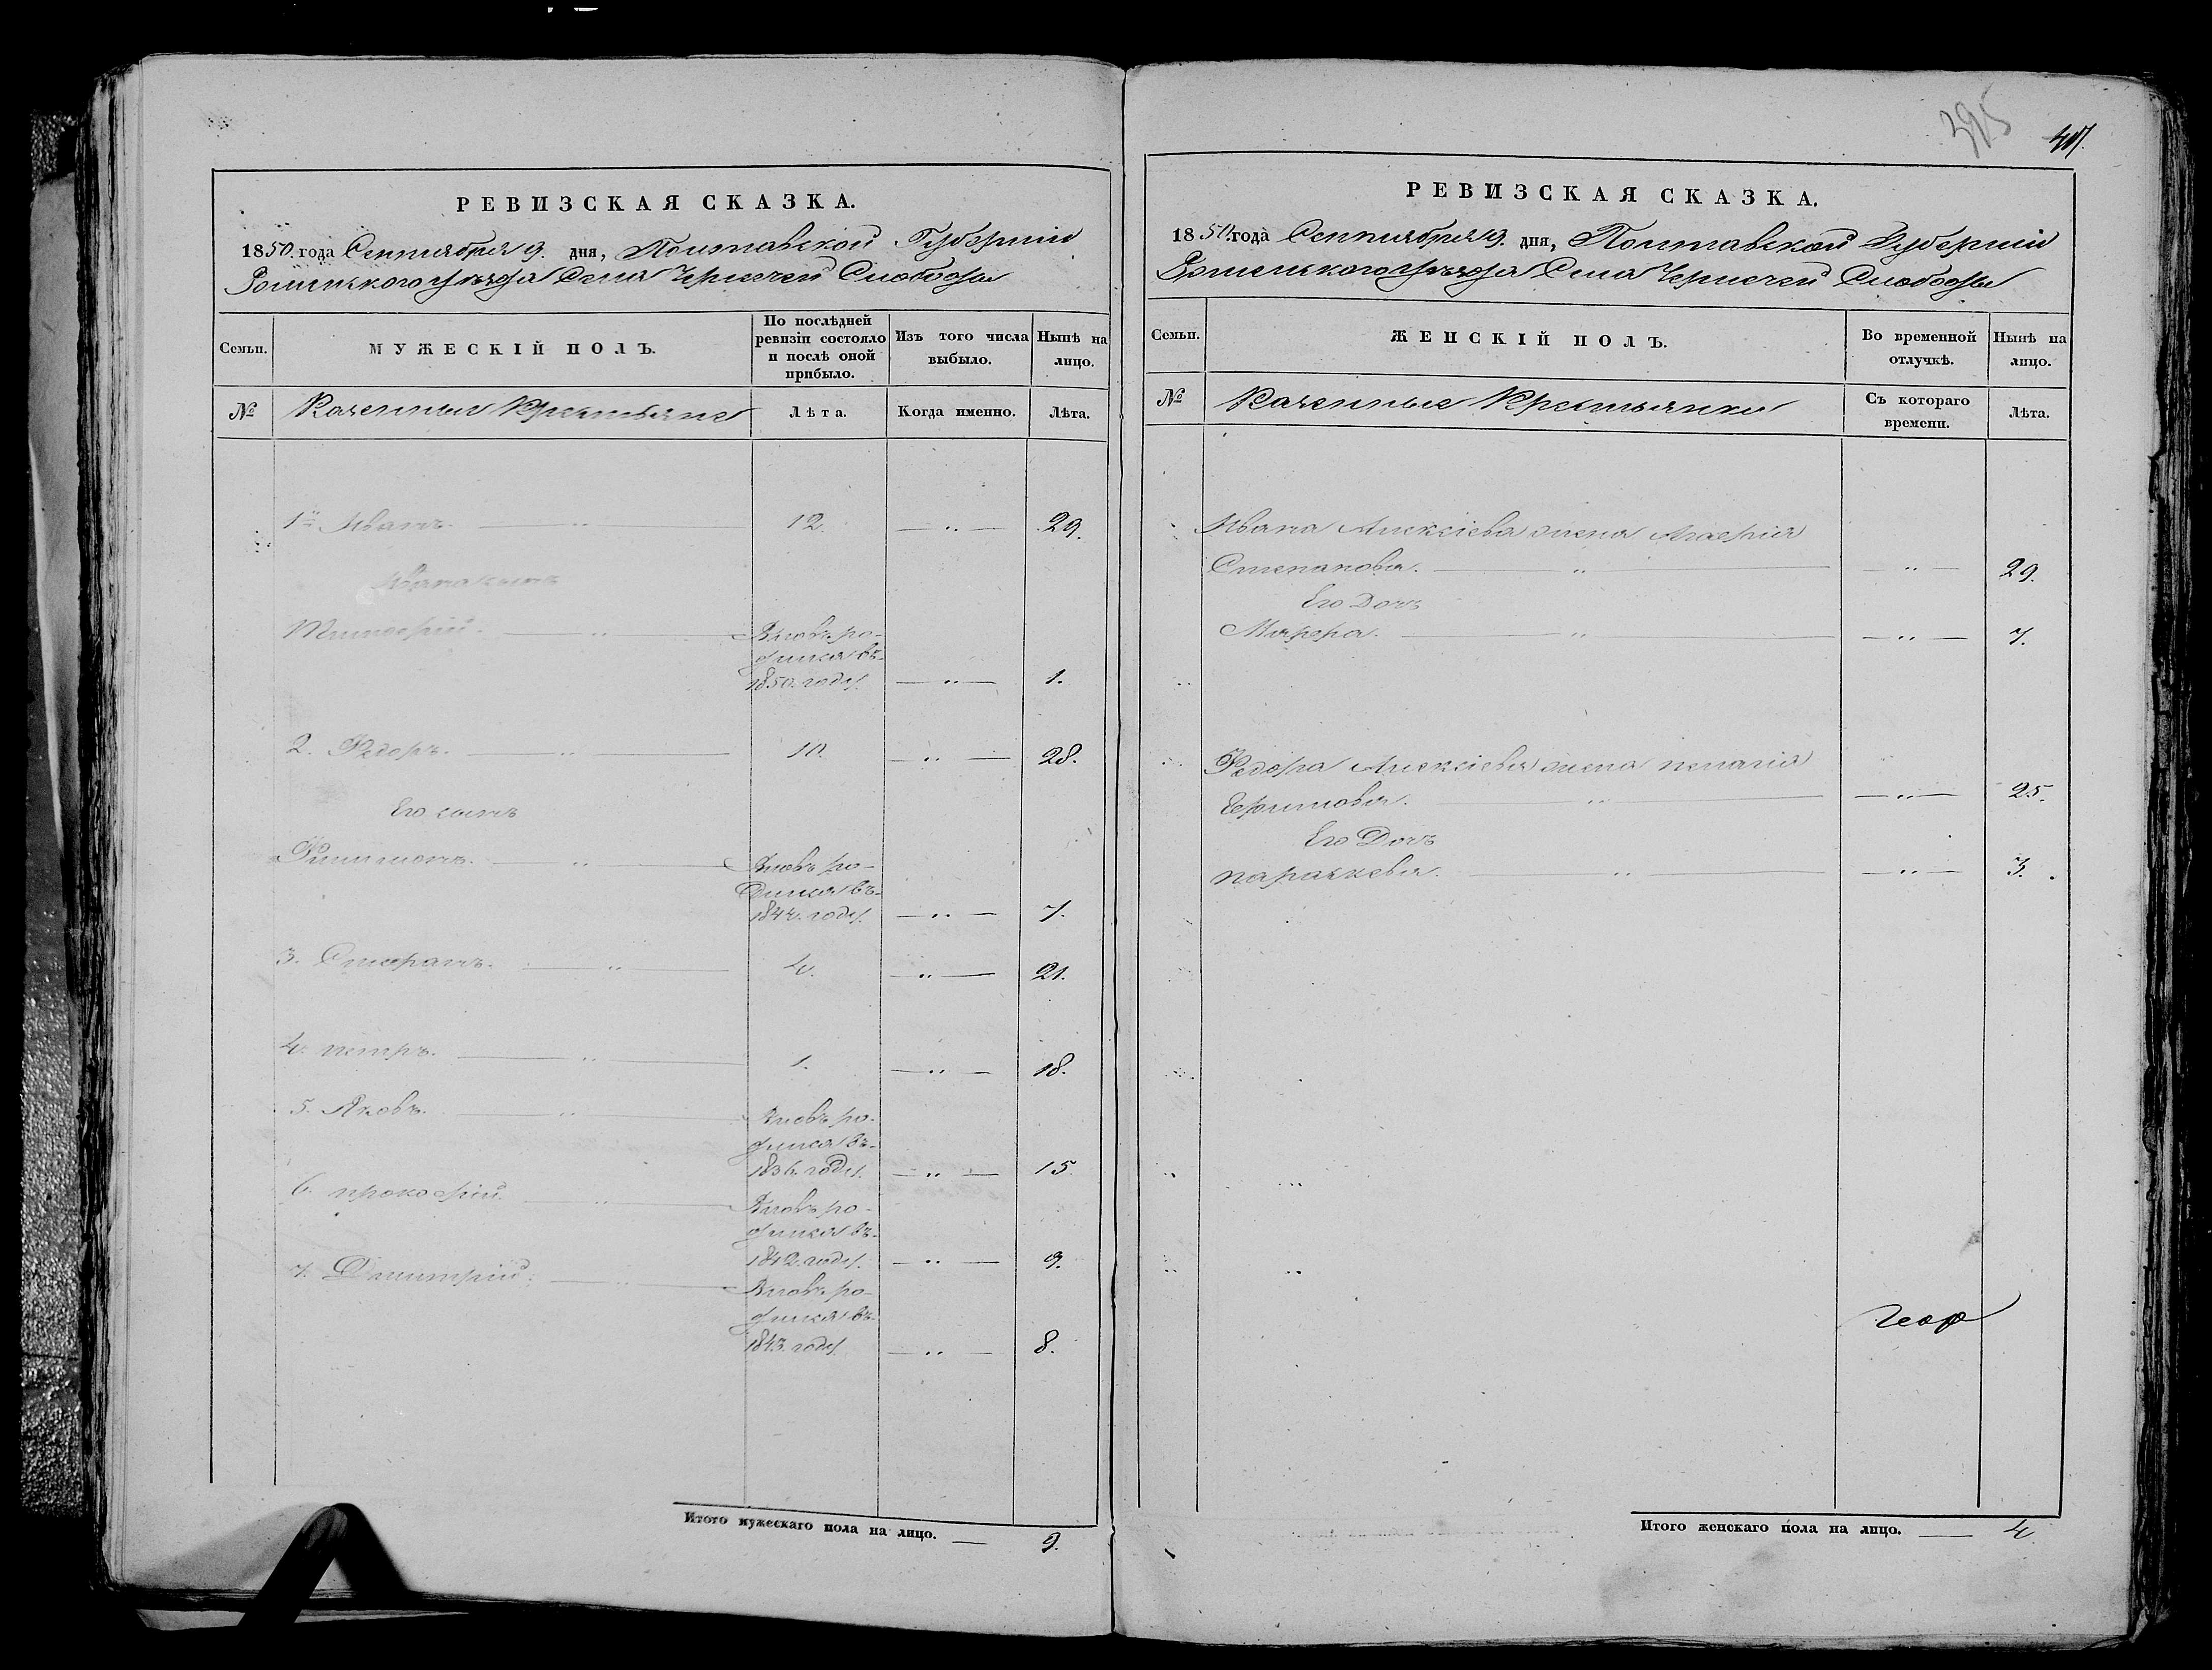 РЕВИЗСКАЯ СКАЗКА.
1850. года Сентября 9. дня, Полтавской Губерніи
Роменского уезда Села Чернечей Слободы
Семьи.
МУЖЕСКІЙ ПОЛЪ.
По послѣдней ревизіи состояло и послѣ оной прибыло.
Изъ того числа выбыло.
Нынѣ на лицо.
№
Казенные Крестьяне
Лѣта.
Когда именно.
Лѣта.
1й Иванъ. 12. 29.
Ивана сынъ
Тимофей. Вновь ро-
дился въ
1850. году. 1.
2. Федоръ. 10. 28.
Его сынъ
Филимонъ. Вновь ро-
дился въ
1844. году. 7.
3. Стефанъ. 4. 21.
4. петръ. 1. 18.
5. Яковъ. Вновь ро-
дился въ
1836. году. 15.
6. прокофій. Вновь ро-
дился въ
1842. году. 9.
7. Дмитрій. Вновь ро-
дился въ
1843. году. 8.
Итого мужескаго пола на лицо. 9.
395
РЕВИЗСКАЯ СКАЗКА.
1850. года Сентября 9. дня, Полтавской Губерніи
Роменского уезда Села Чернечей Слободы
Семьи.
ЖЕНСКІЙ ПОЛЪ.
Во временной отлучкѣ.
Нынѣ на лицо.
№
Казенные Крестьянки
Съ котораго времени.
Лѣта.
Ивана Алексіева жена Агафія
Степанова. 29.
Его Дочь
Марфа. 7.
Федора Алексіева жена пелагія
Ефимова. 25.
Его Дочь
параскева. 3.
Итого женскаго пола на лицо. 4.